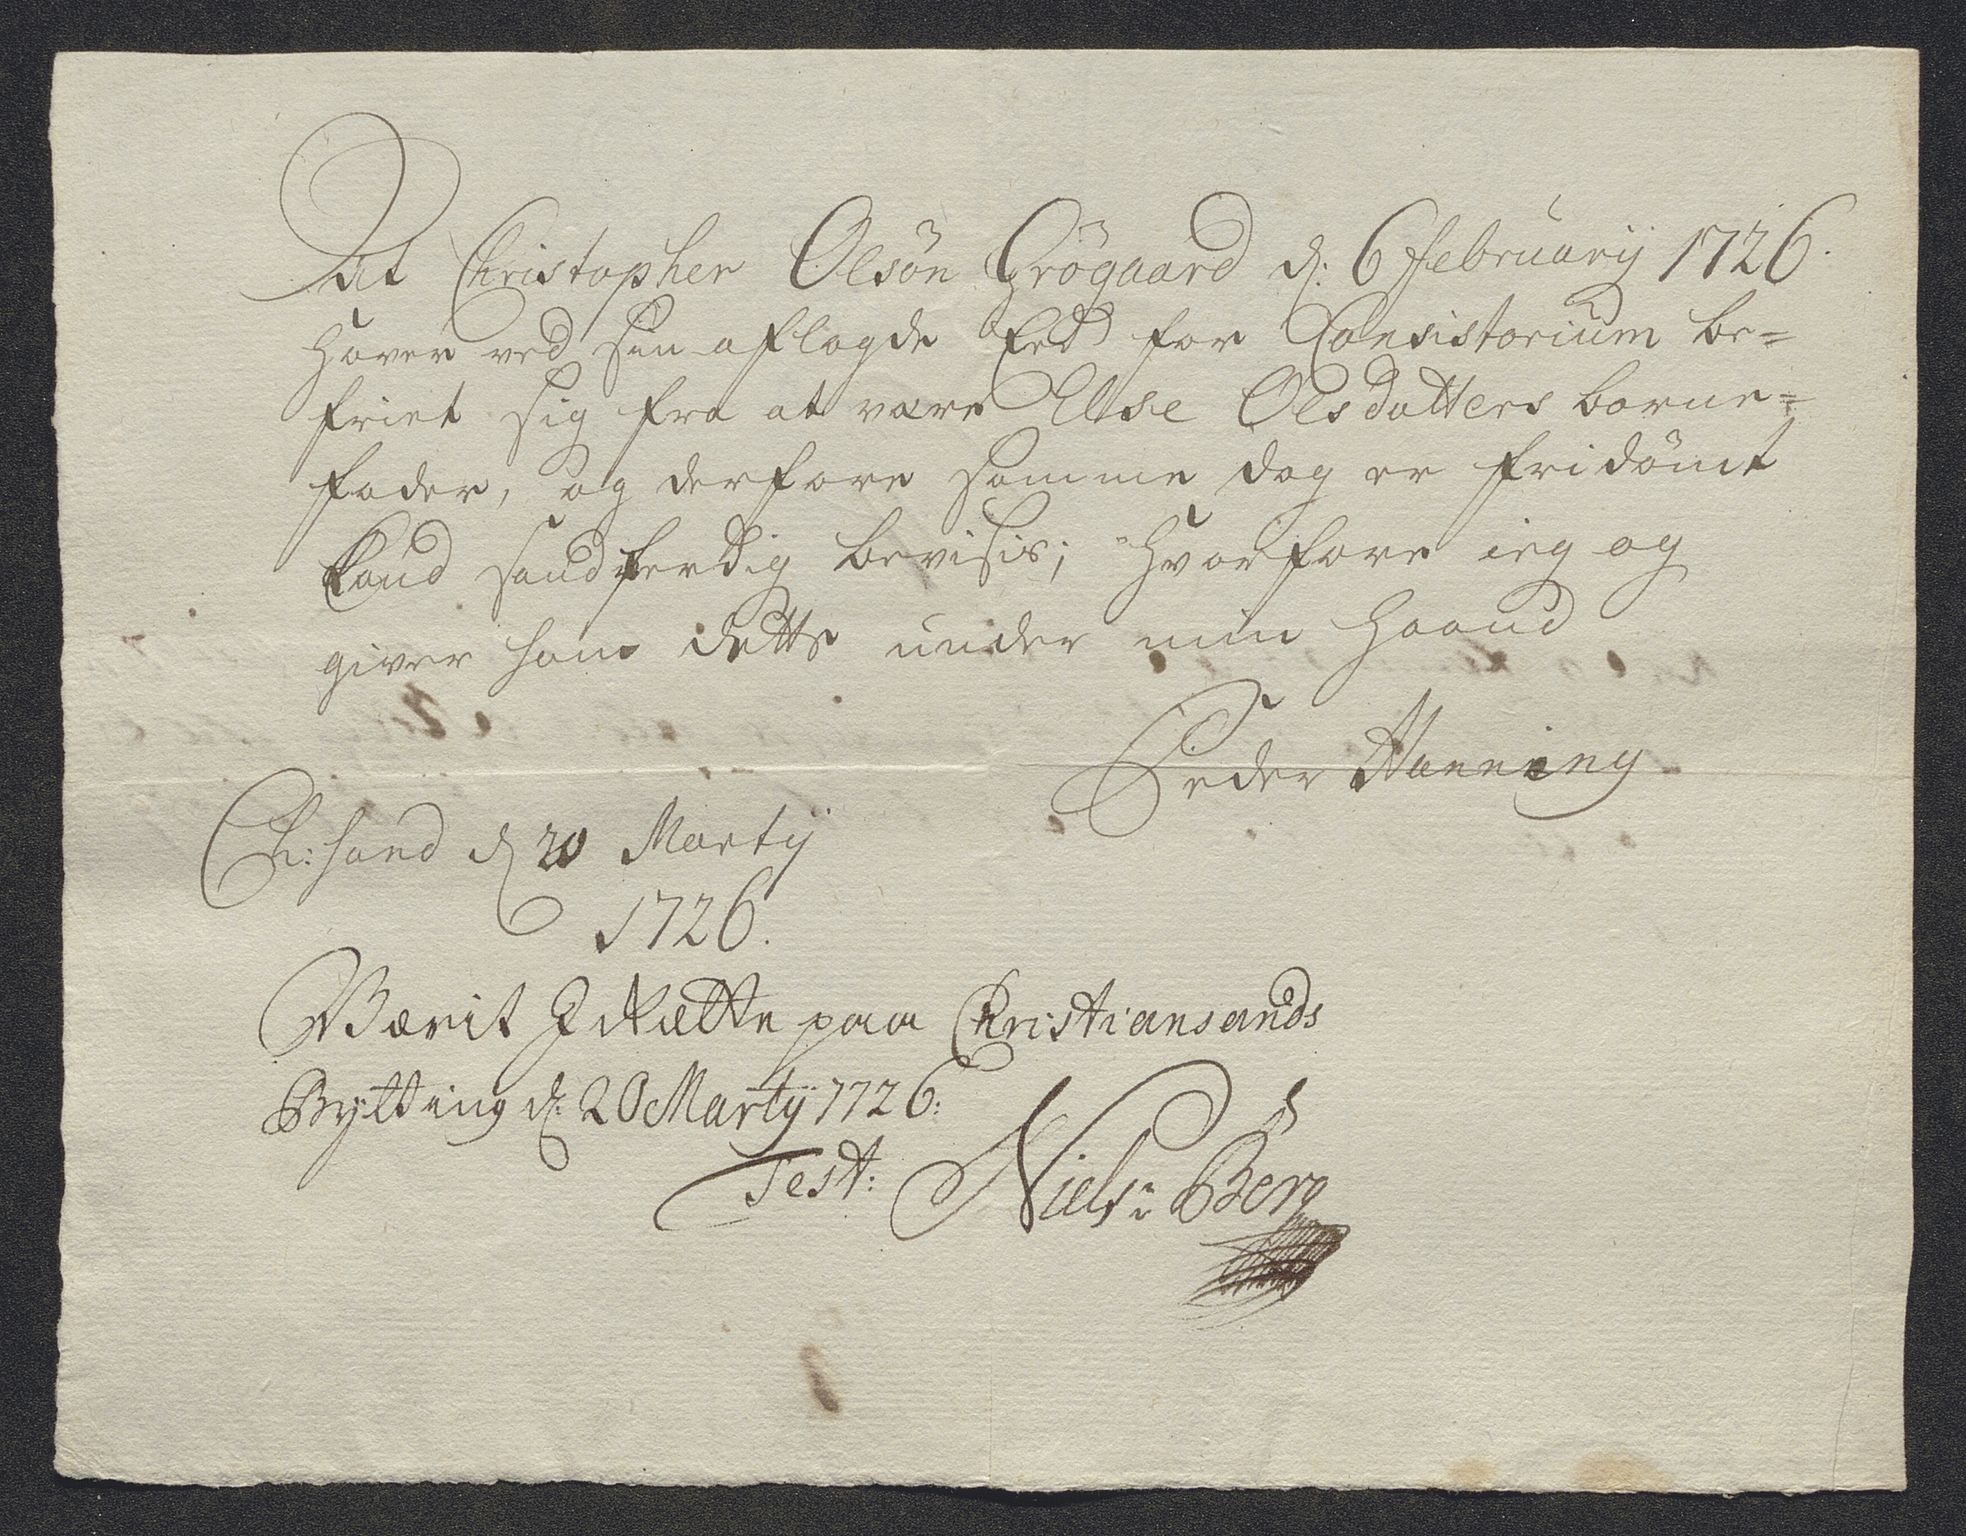 At Christopher Olsön Grögaard d: 6 februarij 1726.
Haver ved sin aflagde Eed for Consistorium be=
friet sig fra at være Else Olsdatters barne=
fader, og derfore samme dag er fri dömt
Kand sandferdig bevisis; Hvorfore ieg og
giver ham dette under min Haand
Peder Hanning
Ch:sand d 20 Martij
1726.
Værit I Rætte paa Christiansands
Bytting d: 20 Martij 1726:
Test: Niels Berg